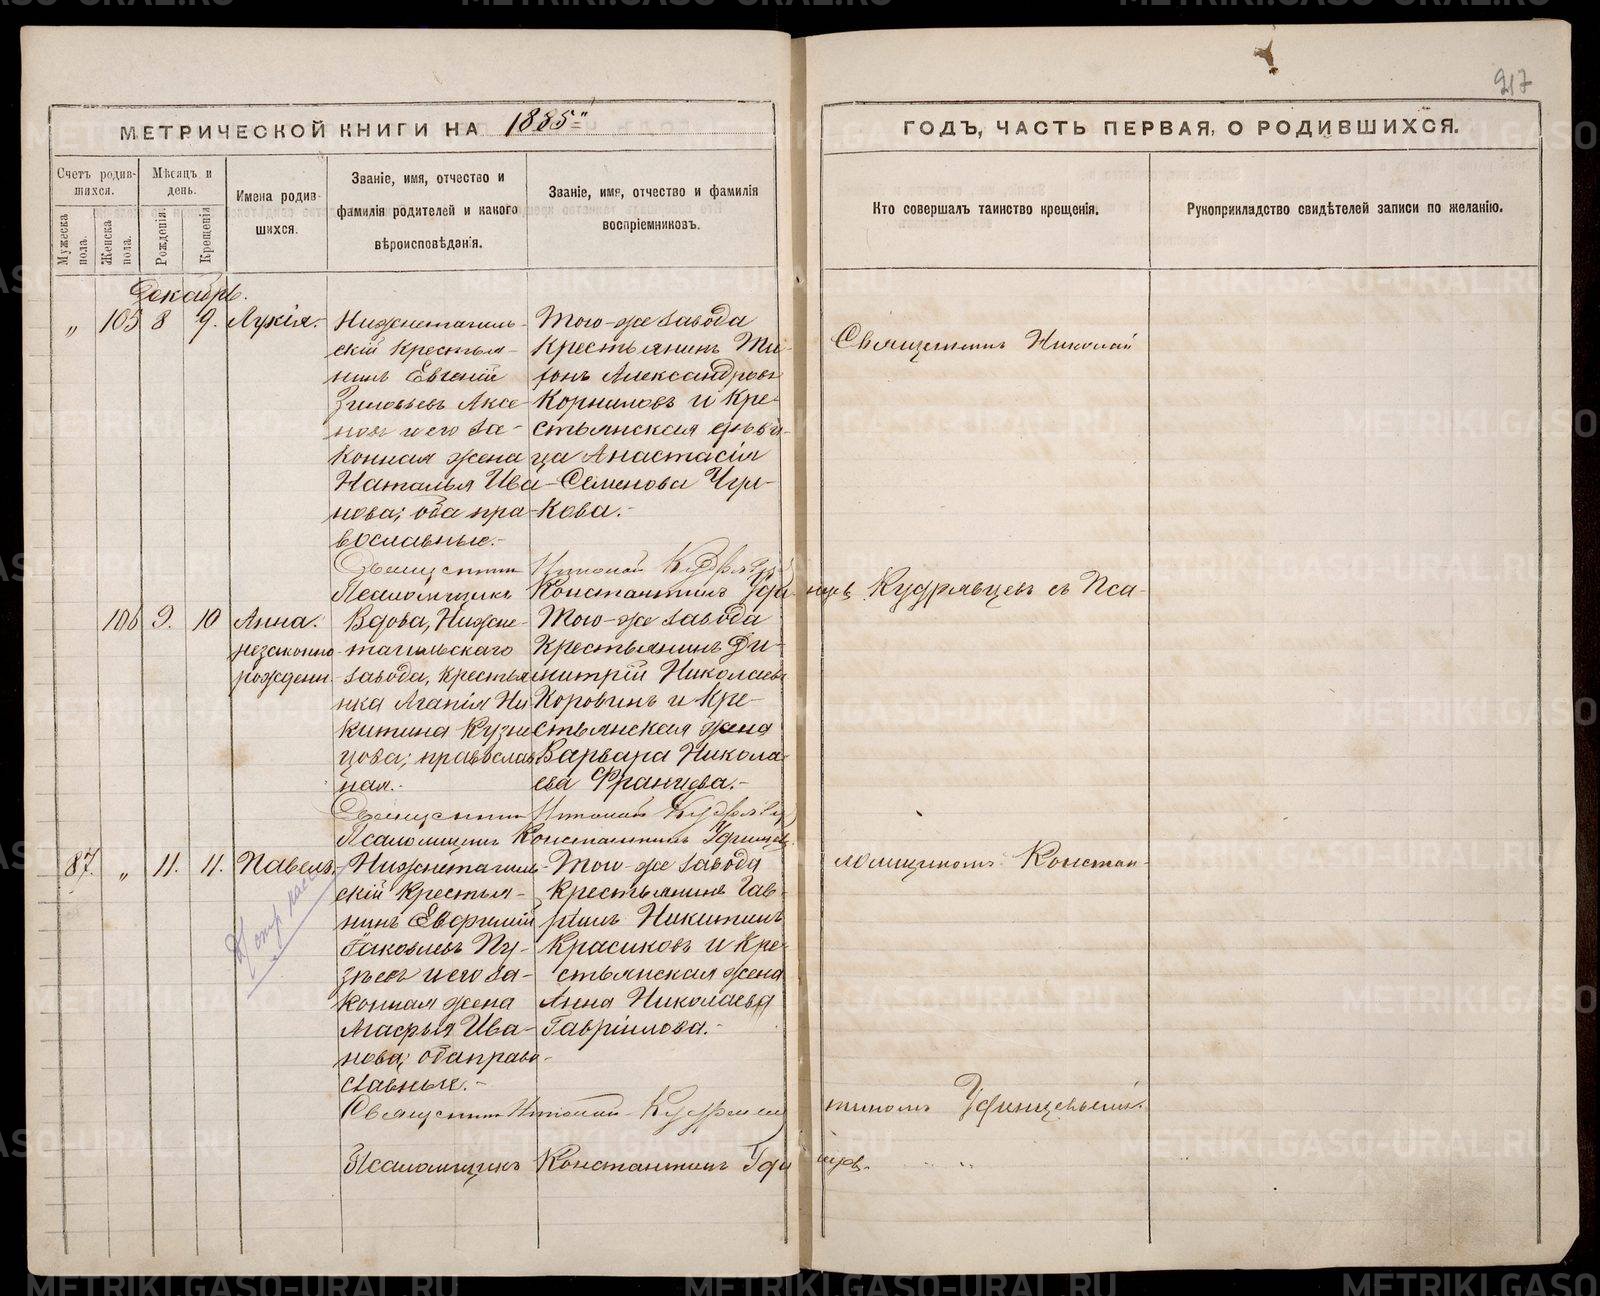 217
МЕТРИЧЕСКОЙ КНИГИ НА 1885
ГОДЪ, ЧАСТЬ ПЕРВАЯ, О РОДИВШИХСЯ.
Счетъ родив-
шихся.
Мужеска пола.
Женска пола.
Мѣсяцъ и
день.
Рожденія.
Крещенія
Имена родив-
шихся.
Званіе, имя, отчество и
фамилія родителей и какого
вѣроисповѣданія.
Званіе, имя, отчество и фамилія
воспріемниковъ.
Кто совершалъ таинство крещенія.
Рукоприкладство свидѣтелей записи по желанію.
Декабрь.
„ 105 8 9. Лукія.
Нижнетагиль-
скій крестья-
нинъ Евгеній
Зиновьевъ Аксе-
новъ и его за-
конная жена
Наталья Ива-
нова; оба пра-
вославные.
Того-же завода
крестьянинъ
Александровъ
Корниловъ и кре-
стьянская дѣви-
ца Анастасія
Семенова
кова.
Священникъ Николай
Священникъ Николай Кудрявцевъ
Псаломщикъ Константинъ Уфинцевъ
Кудрявцевъ съ Пса-
106 9. 10 Анна.
незаконно-
рожденн
Вдова, Нижне-
тагильскаго
завода, крестья-
нка Агапія Ни-
китина Кузне
цова; православ
ная.
Того-же завода
крестьянинъ Ди-
митрій Николаевъ
Коровинъ и кре-
стьянская жена
Варвара Никола-
ева Францева.
Священникъ Николай Кудрявцевъ
Псаломщикъ Константинъ Уфинцевъ
87. „ 11. 11. Павелъ.
Нижнетагиль-
скій крестья-
нинъ Евфимій
Іаковлевъ Пу-
зѣевъ и его за-
конная жена
Марфья Ива-
нова; оба право-
славные.
Того-же завода
крестьянинъ Гав-
ріилъ Никитинъ
Красиковъ и кре-
стьянская жена
Анна Николаева
Гавріилова.
ломщикомъ Констан-
тиномъ Уфинцевымъ.
Священникъ Николай Кудрявцевъ
Псаломщикъ Константинъ Уфинцевъ.
METRIKI.GASO-URAL.RU